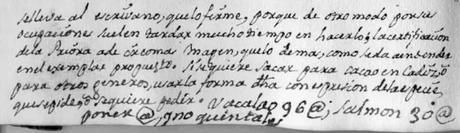 se lleva al escrivano, que lo firme, porque de otro modo por sus
ocupaciones suelen tardar mucho tiempo en hacerlo; la certificacion
de la Priora ade ir como Imagen, que lo demas, como se da a entender
en el exemplar propuesto. Si se quiere sacar para cacao en Cadiz, o
para otros generos, usar la forma dha con expresion de la especie,
que se pide, o se quiere pedir. Vacalao 96@; salmon 30@
poner @, y no quintal.